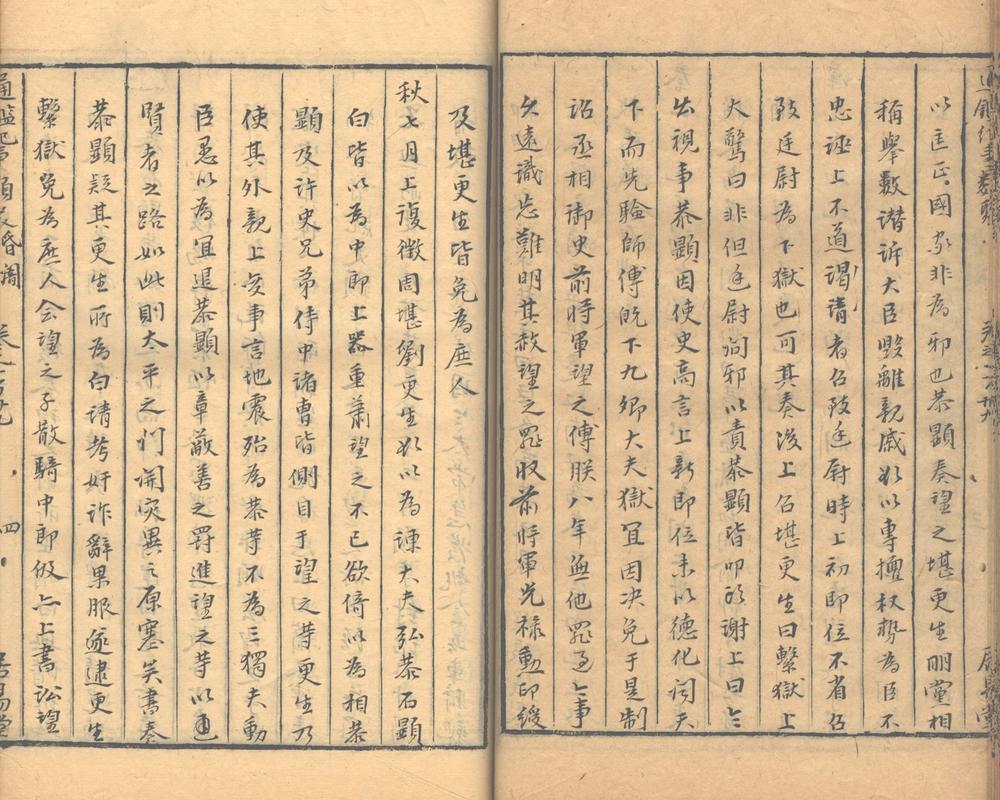 以匡正國家非為邪也恭顯奏望之堪更生朋黨相
稱舉數譖訴大臣毀離親戚欲以專擅权势為臣不
忠誣上不道謁請者召致廷尉時上初即位不省召
致廷尉為下獄也可其奏後上召堪更生曰繫獄上
大驚曰非但廷尉问邪以責恭顯皆叩頭谢上曰令
出視事恭顯因使史高言上新即位未以德化闻天
下而先驗師傅既下九卿大夫獄宜因决免于是制
诏丞相御史前將軍望之傅朕八年無他罪过今事
久遠識忘難明其赦望之罪收前將軍光禄勳印綬
及堪更生皆免為庶人
秋七月上復徵周堪劉更生欲以為諫大夫弘恭石顯
白皆以為中郎上器重蕭望之不已欲倚以為相恭
顯及許史兄弟侍中諸曹皆側目于望之等更生乃
使其外親上变事言地震殆為恭等不為三獨夫動
臣愚以為宜退恭顯以章蔽善之罰進望之等以通
賢者之路如此則太平之门開灾異之原塞矣書奏
恭顯疑其更生所為白请考奸诈辭果服遂逮更生
繫獄免為庶人会望之子散騎中郎伋亦上書訟望